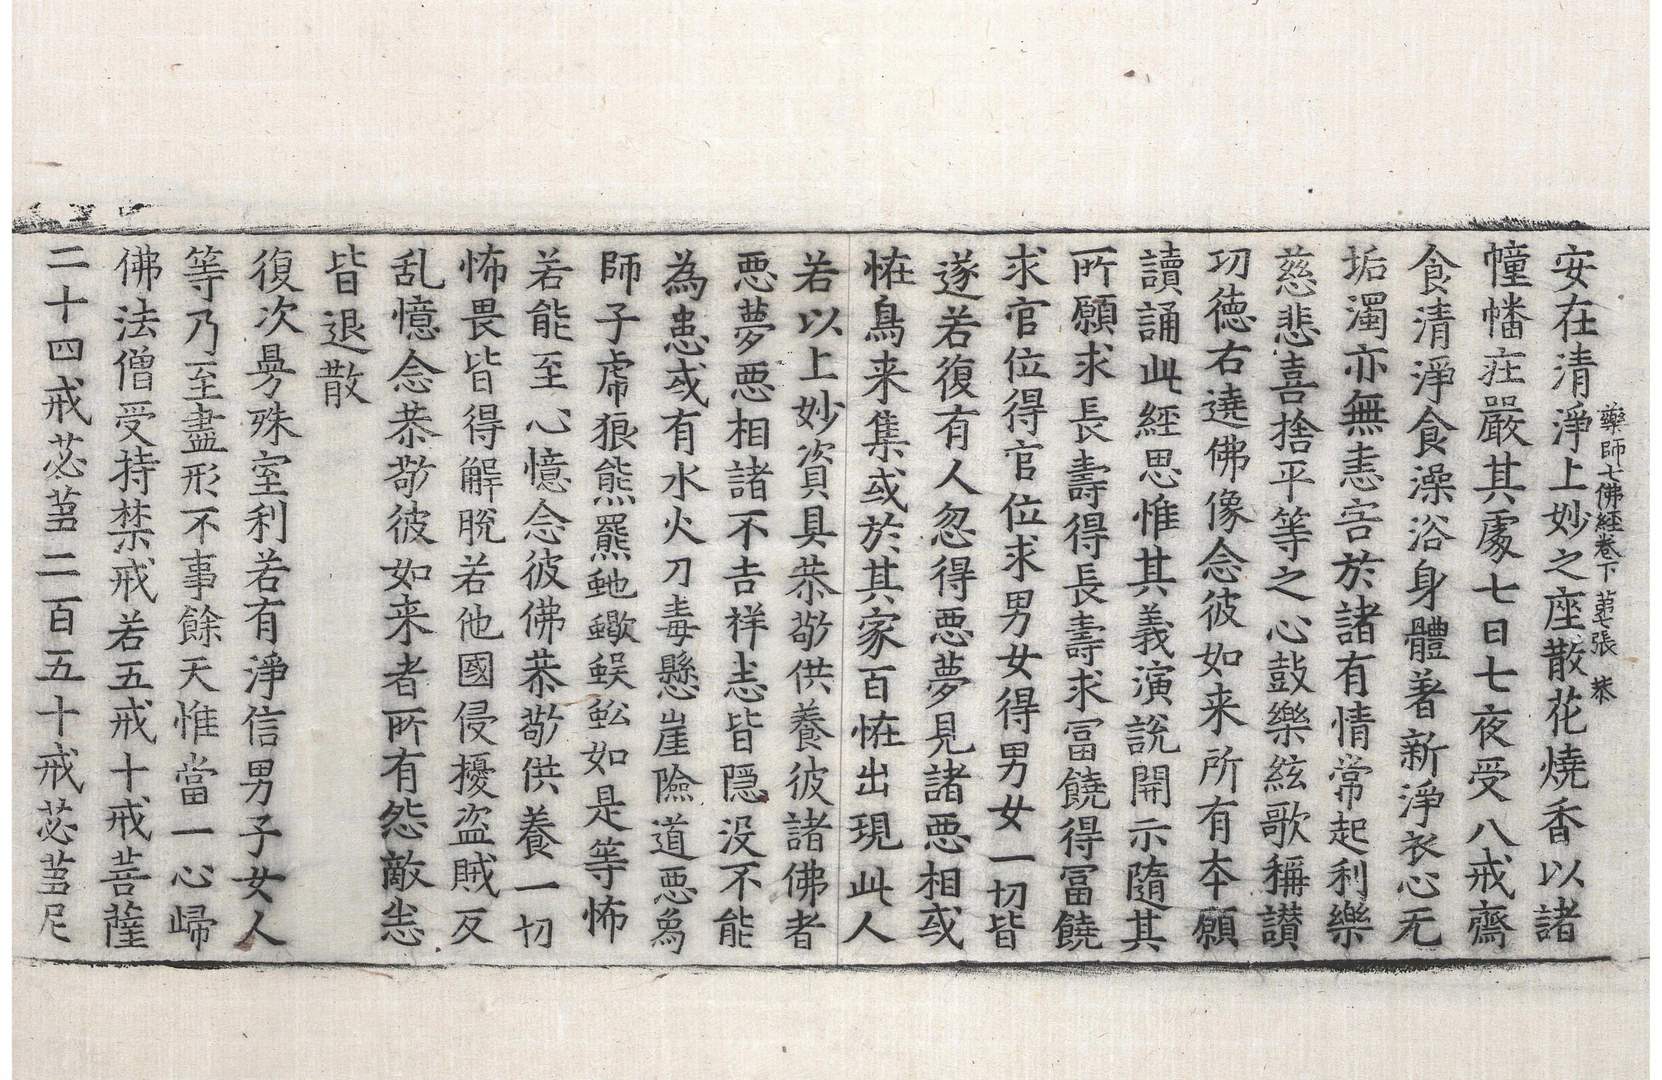 藥師七佛經卷下 苐張 恭
安在清淨上妙之座散花燒香以諸
幢幡莊嚴其處七日七夜受八戒齋
食清淨食澡浴身體著新淨衣心无
垢濁亦無恚害於諸有情常起利樂
慈悲喜捨平等之心鼓樂絃歌稱讃
功德右遶佛像念彼如来所有本願
讀誦此經思惟其義演說開示隨其
所願求長壽得長壽求冨饒得冨饒
求官位得官位求男女得男女一切皆
遂若復有人忽得惡夢見諸惡相或
恠鳥来集或於其家百恠出現此人
若以上妙資具恭敬供養彼諸佛者
惡夢惡相諸不吉祥恚皆隱没不能
為患或有水火刀毒懸崖險道惡為
師子虎狼熊羆虵蠍蜈蚣如是等怖
若能至心憶念彼佛恭敬供養一切
怖畏皆得解脫若他國侵擾盜賊反
乱憶念恭敬彼如来者所有怨敵恚
皆退散
復次曼殊室利若有淨信男子女人
等乃至盡形不事餘天惟當一心歸
佛法僧受持禁戒若五戒十戒菩薩
二十四戒苾芻二百五十戒苾芻尼